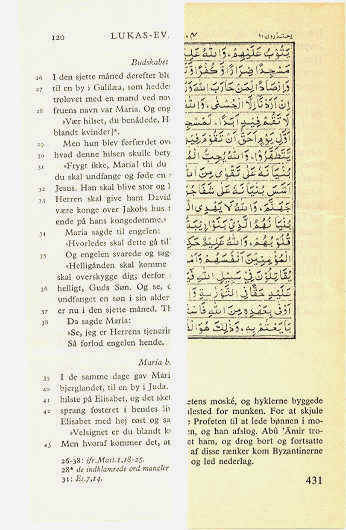 120 LUKAS-EV.
Budskabet
26 I den sjette måned derefter ble
27 til en by i Galilæa, som hedder
trolovet med en mand ved nav
28 fruens navn var Maria. Og eng
»Vær hilset, du benådede, H
blandt kvinder]«.
29 Men hun blev forfærdet ove
hvad denne hilsen skulle bety
30 »Frygt ikke, Maria! thi du
31 du skal undfange og føde en s
32 Jesus. Han skal blive stor og k
Herren skal give ham David
være konge over Jakobs hus i
ende på hans kongedømme.«
34 Maria sagde til engelen:
»Hvorledes skal dette gå til
35 Og engelen svarede og sag
»Helligånden skal komme
skal overskygge dig; derfor
36 helligt, Guds Søn. Og se, d
undfanget en søn i sin alder
37 er nu i den sjette måned. Th
38 Da sagde Maria:
»Se, jeg er Herrens tjenerin
Så forlod engelen hende.
Maria b
39 I de samme dage gav Mari
40 bjerglandet, til en by i Juda.
41 hilste på Elisabet, og det sket
42 sprang fosteret i hendes liv
Elisabet med høj røst og sa
»Velsignet er du blandt kv
43 Men hvoraf kommer det, at
26-38: jfr. Matt. 1,18-25.
28* de indklamrede ord mangler
31: Es. 7,14.
يَتُوبُ عَلَيْهِمْ وَاللَّهُ
مَسْجِدًا ضِرَارًا وَكُفْرًا
وَإِرْصَادًا لِمَنْ حَارَبَ
إِنْ أَرَدْنَا إِلَّا الْحُسْنَى
لَا تَقُمْ فِيهِ أَبَدًا
أَوَّلِ يَوْمٍ أَحَقُّ أَنْ
يَتَطَهَّرُوا وَاللَّهُ يُحِبُّ
بُنْيَانَهُ عَلَى تَقْوَى مِنَ
أَسَّسَ بُنْيَانَهُ عَلَى شَفَا
جَهَنَّمَ وَاللَّهُ لَا يَهْدِي
بُنْيَانُهُمُ الَّذِي
قُلُوبُهُمْ وَاللَّهُ عَلِيمٌ
الْمُؤْمِنِينَ أَنْفُسَهُمْ
يُقَاتِلُونَ فِي سَبِيلِ اللَّهِ
عَلَيْهِ حَقًّا فِي التَّوْرَاةِ
أَوْفَى بِعَهْدِهِ مِنَ اللَّهِ
بَايَعْتُمْ بِهِ وَذَلِكَ هُوَ
etens moské, og hyklerne byggede
lested for munken. For at skjule
Profeten til at lede bønnen i mo-
n, og han afslog. Abû 'Âmir tro-
et ham, og drog bort og fortsatte
af disse rænker kom Byzantinerne
og led nederlag.
431